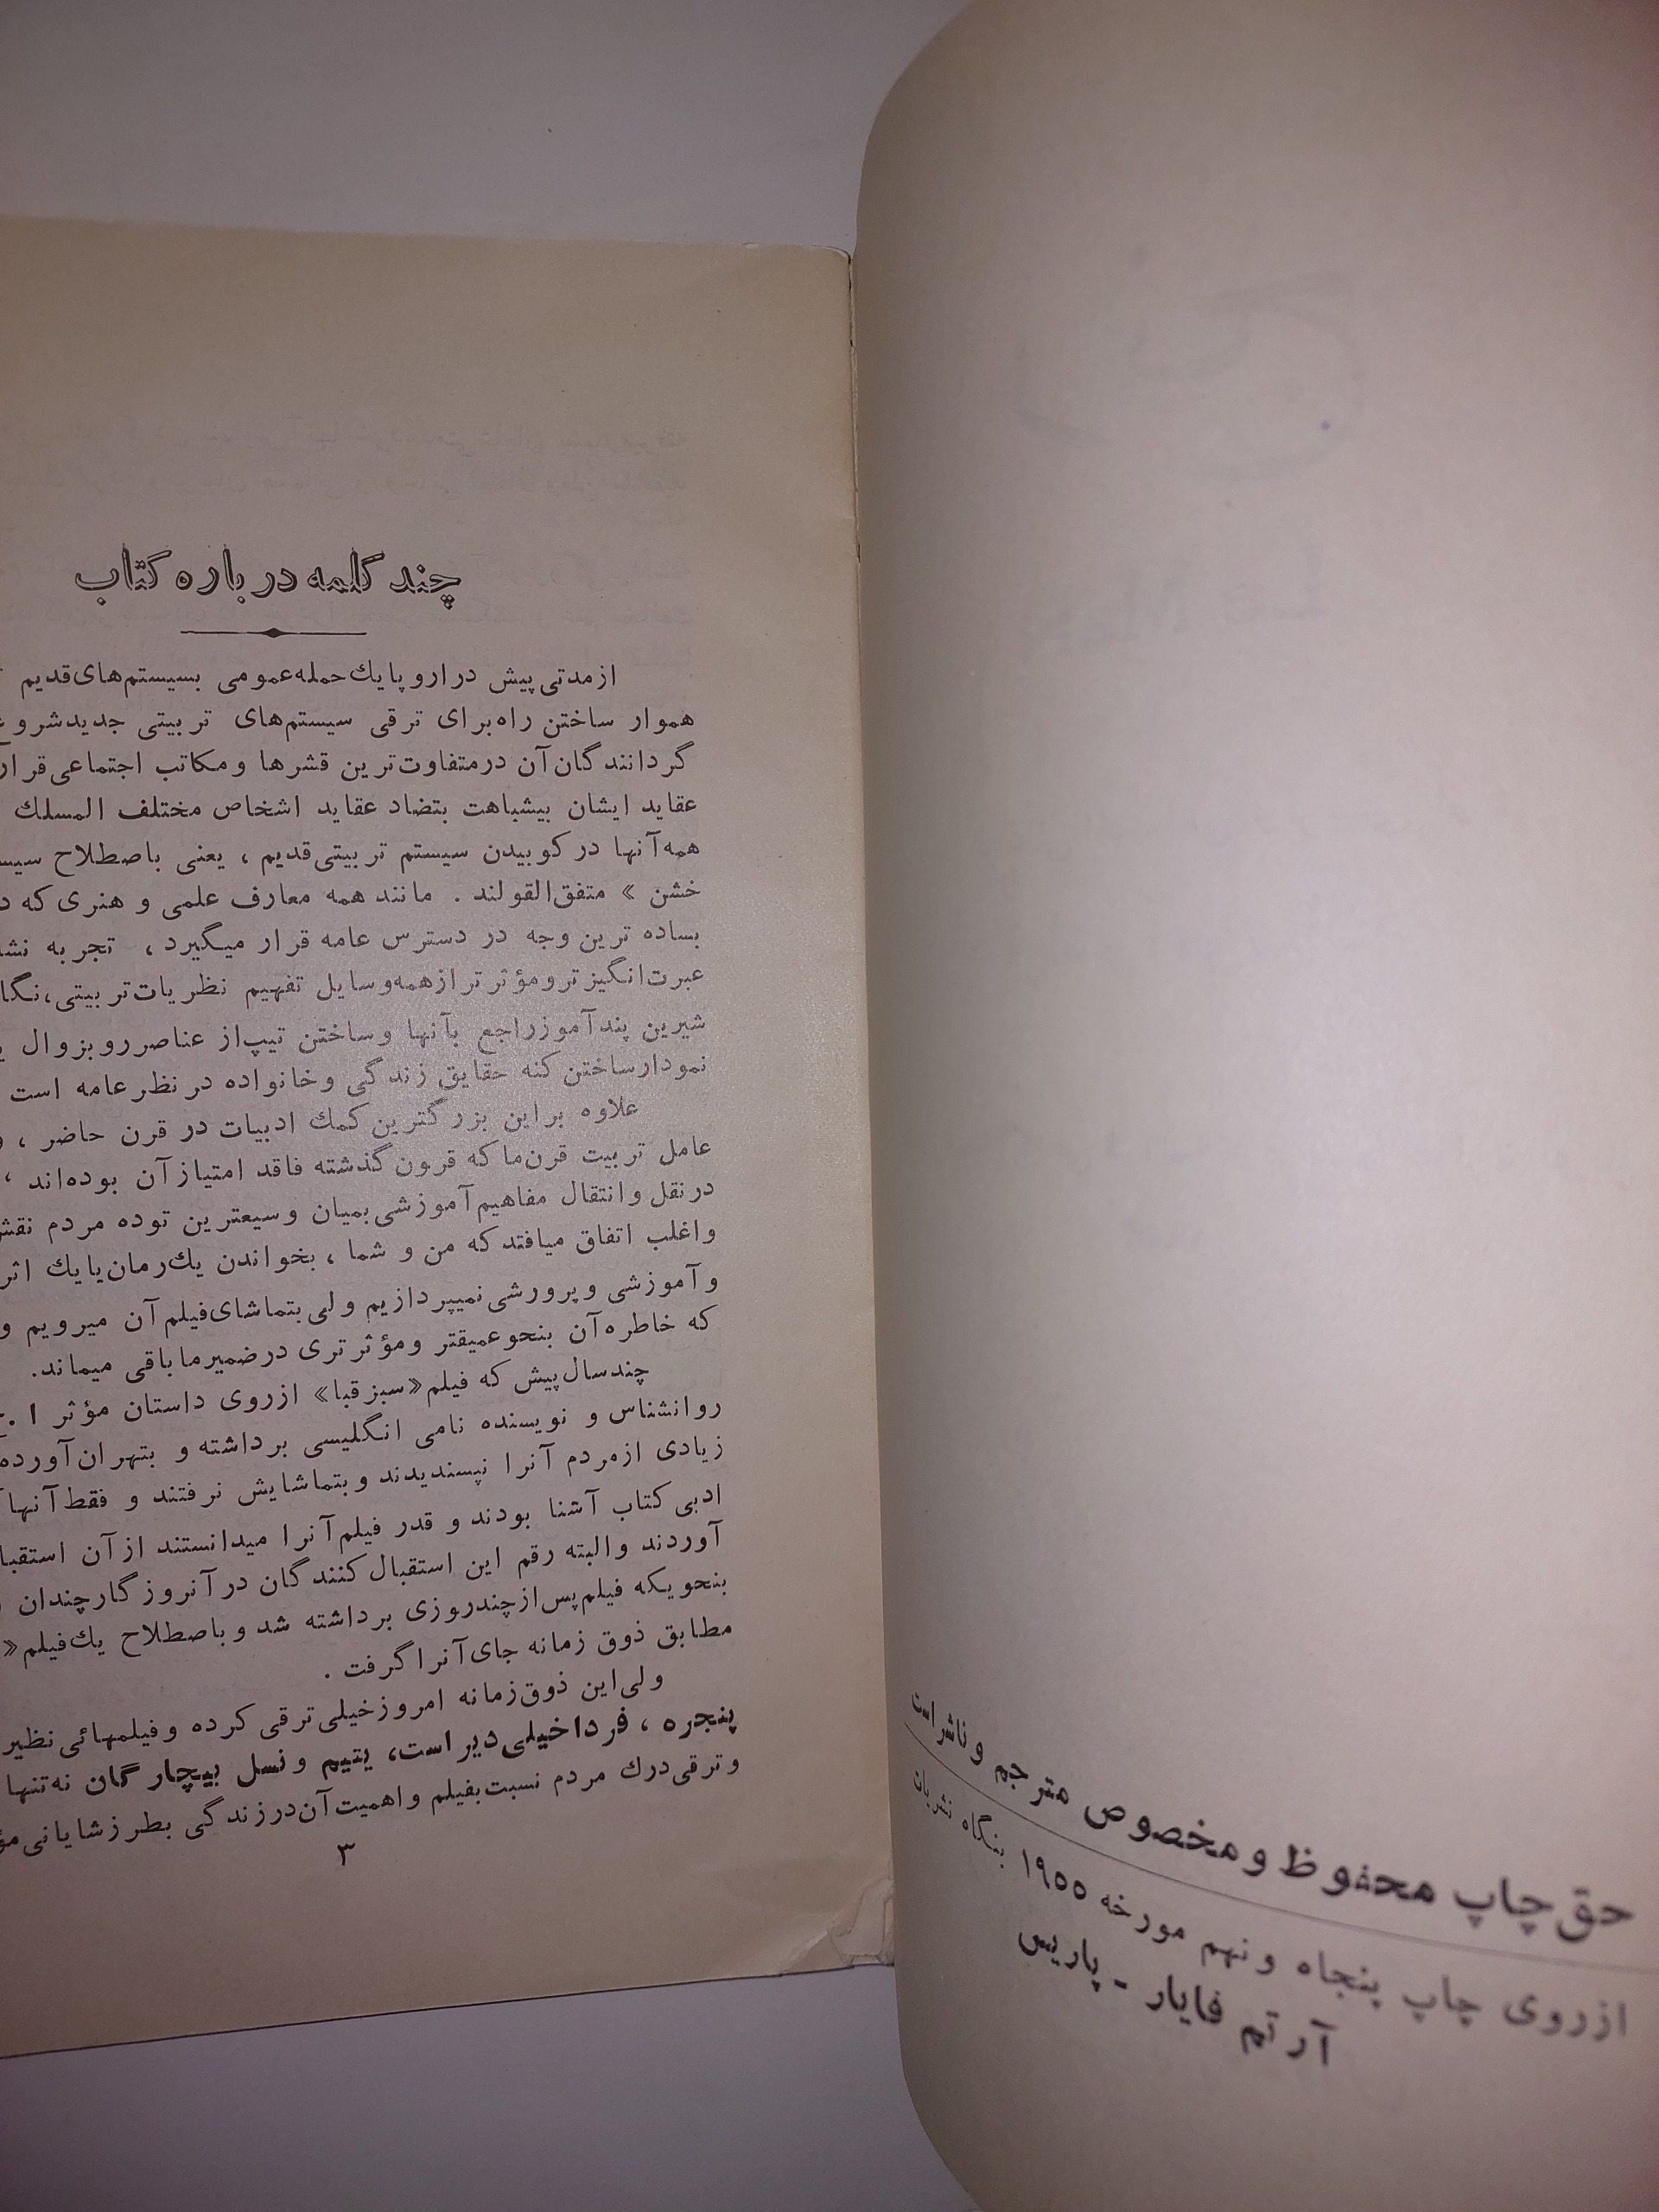 حق چاپ محفوظ و مخصوص مترجم و ناشر است
از روی چاپ پنجاه و نهم مورخه ۱۹۵۵ بنگاه نشریات
آرتم فایار - پاریس
چند کلمه درباره کتاب
از مدتی پیش در اروپا یك حمله عمومی بسیستم‌های قدیم
هموار ساختن راه برای ترقی سیستم‌های تربیتی جدید شروع
گردانندگان آن در متفاوت‌ترین قشرها و مکاتب اجتماعی قرار
عقاید ایشان بیشباهت بتضاد عقاید اشخاص مختلف المسلك
همه آنها در کوبیدن سیستم تربیتی قدیم ، یعنی باصطلاح
خشن » متفق‌القولند . مانند همه معارف علمی و هنری که
بساده ترین وجه در دسترس عامه قرار میگیرد ، تجربه
عبرت‌انگیزتر و مؤثرتر از همه وسایل تفهیم نظریات تربیتی،
شیرین پندآموز راجع بآنها و ساختن تیپ از عناصر رو بزوال
نمودار ساختن کنه حقایق زندگی و خانواده در نظر عامه است
علاوه بر این بزرگترین کمك ادبیات در قرن حاضر ،
عامل تربیت قرن‌ما که قرون گذشته فاقد امتیاز آن بوده‌اند ،
در نقل و انتقال مفاهیم آموزشی بمیان وسیعترین توده مردم
و اغلب اتفاق میافتد که من و شما ، بخواندن یك رمان یا یك اثر
و آموزشی و پرورشی نمیپردازیم ولی بتماشای فیلم آن میرویم و
که خاطره آن بنحو عمیقتر و مؤثرتری در ضمیر ما باقی میماند.
چند سال پیش که فیلم «سبزقبا» از روی داستان مؤثر ا .
روانشناس و نویسنده نامی انگلیسی برداشته و بتهران آورده
زیادی از مردم آنرا نپسندیدند و بتماشایش نرفتند و فقط آنها
ادبی کتاب آشنا بودند و قدر فیلم آنرا میدانستند از آن
آوردند و البته رقم این استقبال کنندگان در آنروزگار چندان
بنحویکه فیلم پس از چندروزی برداشته شد و باصطلاح یك فیلم «
مطابق ذوق زمانه جای آنرا گرفت .
ولی این ذوق زمانه امروز خیلی ترقی کرده و فیلمهائی نظیر
پنجره ، فردا خیلی دیر است، یتیم و نسل بیچارگان نه تنها
و ترقی درك مردم نسبت بفیلم و اهمیت آن در زندگی بطرز شایانی
۳